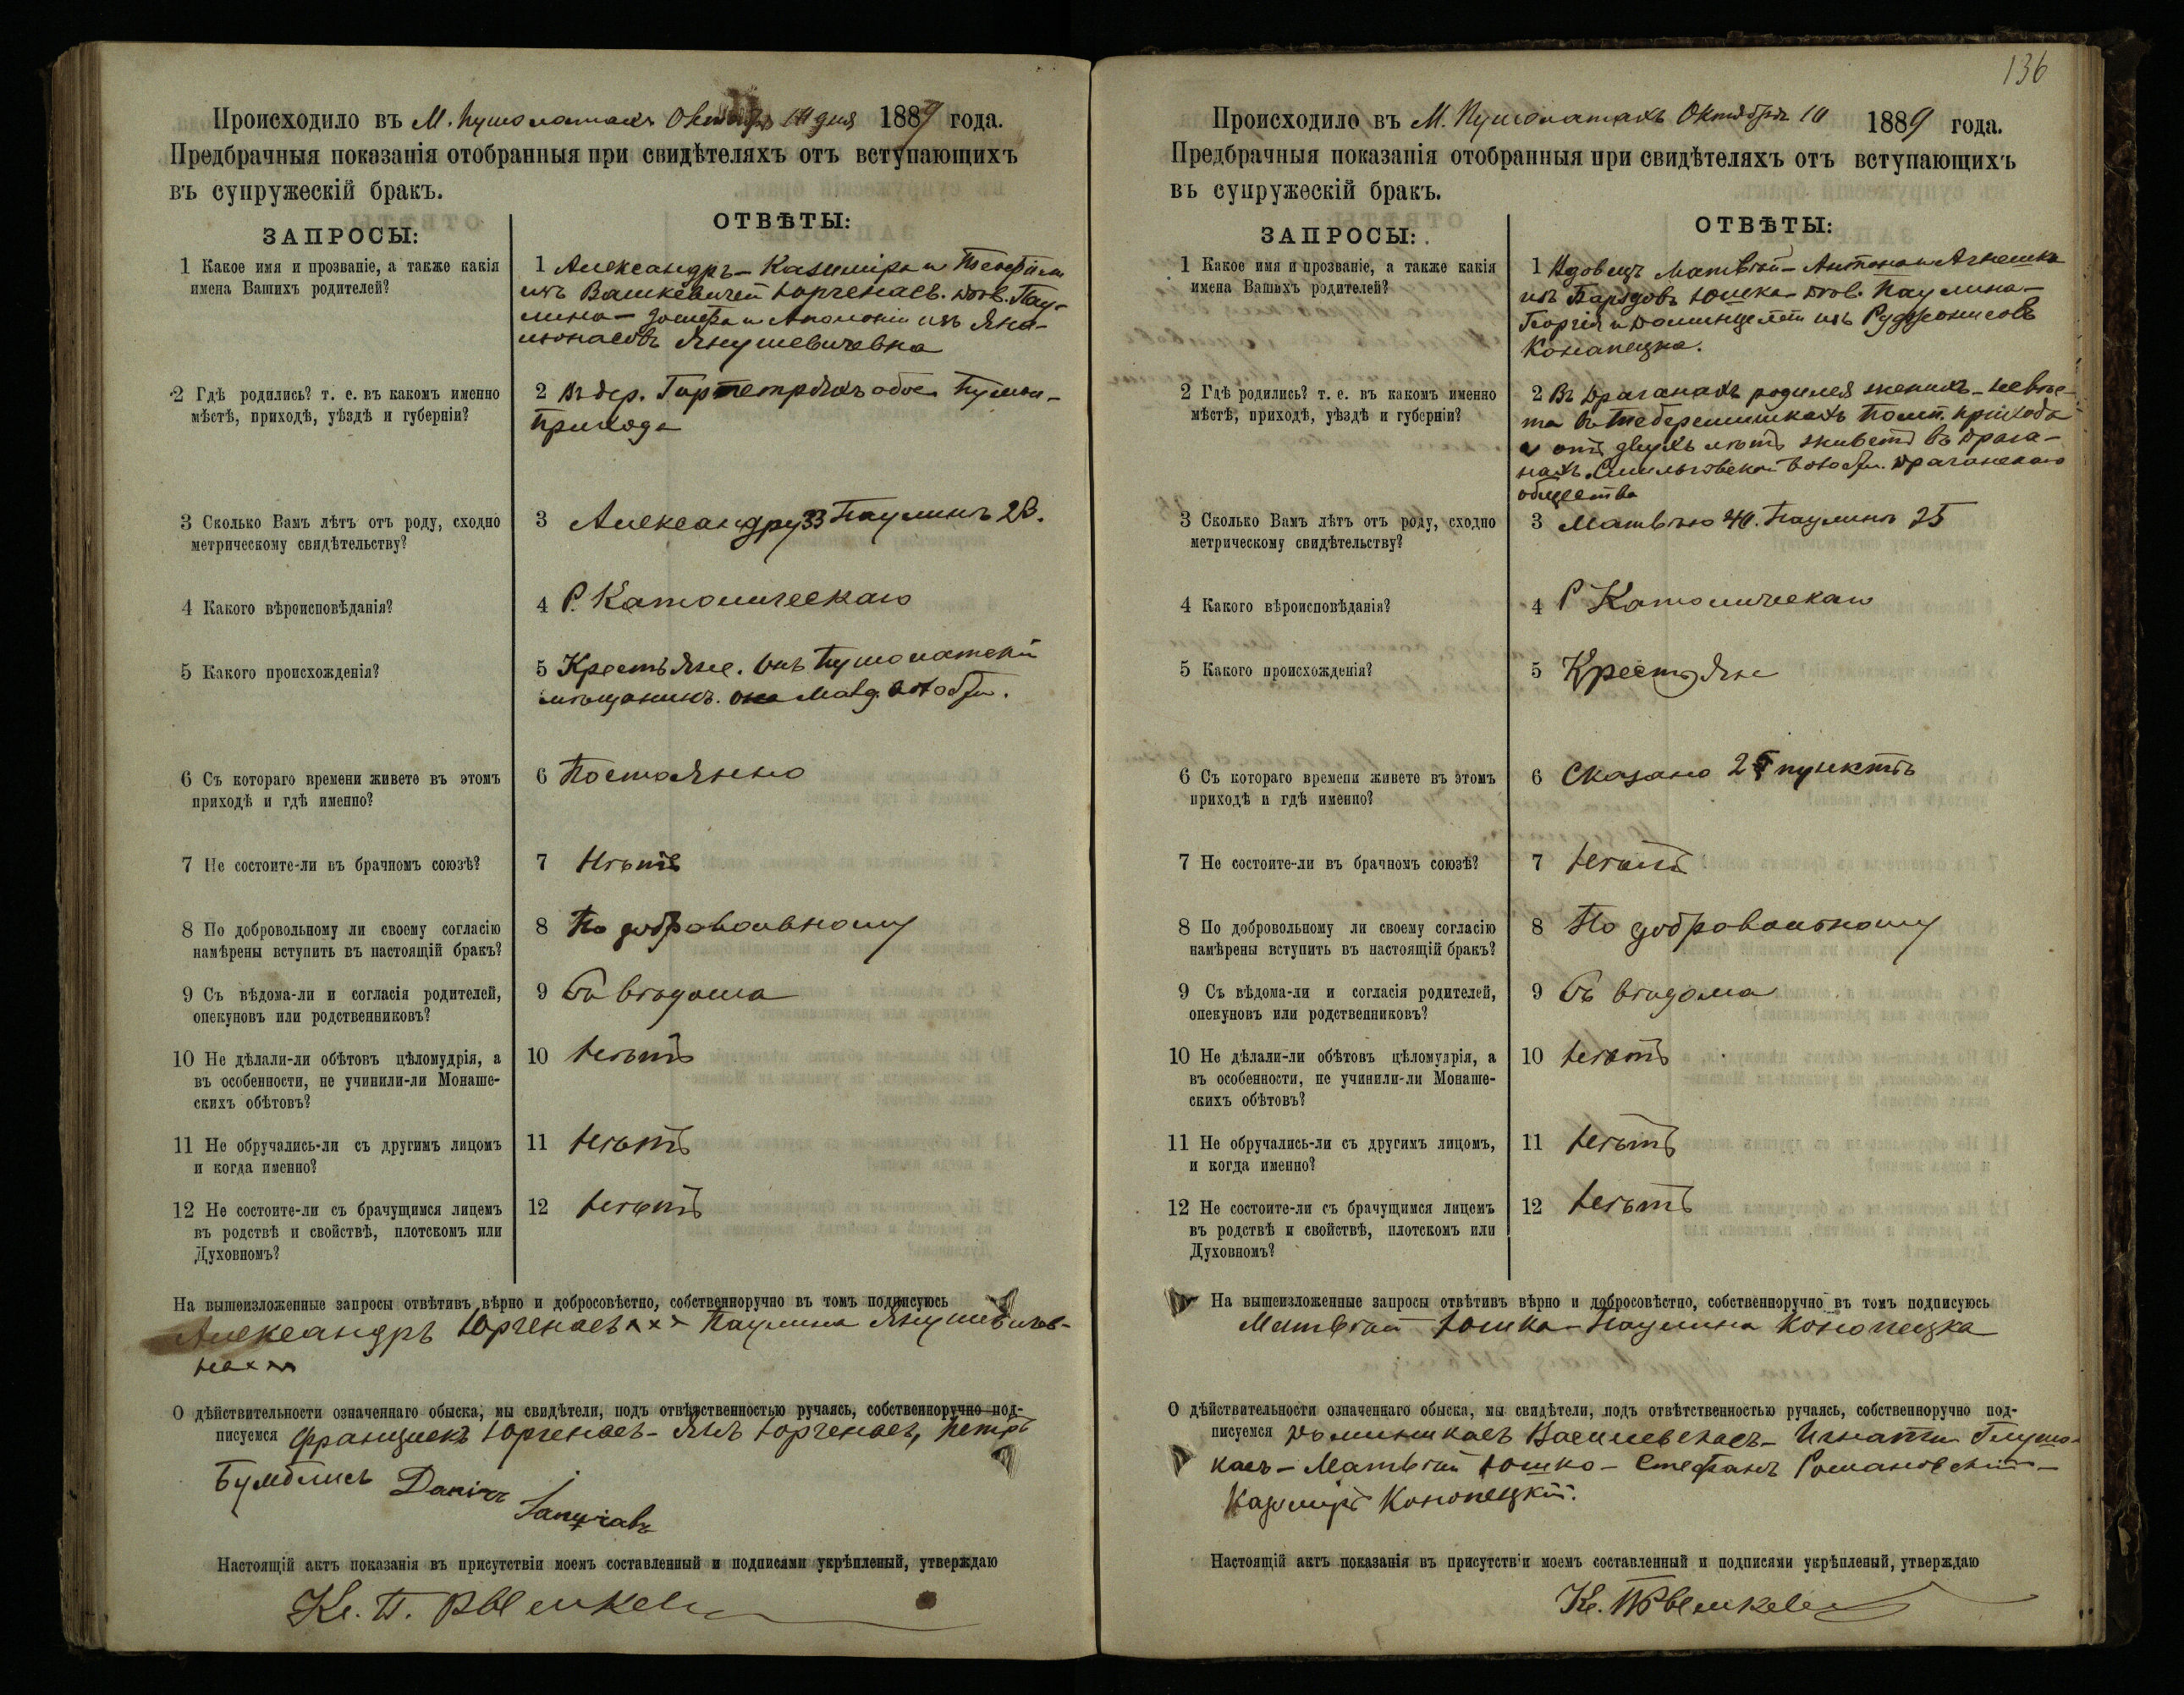 Происходило въ М. Пушолатахъ Октября 10 дня 1889 года.
Предбрачныя показанія отобранныя при свидѣтеляхъ отъ вступающихъ
въ супружескій бракъ.
ЗАПРОСЫ:
ОТВѢТЫ:
1 Какое имя и прозваніе, а также какія
имена Вашихъ родителей?
1 Александръ – Казиміра и Теофіли
изъ Вашкевичей Юргенасъ. дѣв. Пау-
лина – Іосифа и Аполоніи изъ
Янушевичевна
2 Гдѣ родились? т. е. въ какомъ именно
мѣстѣ, приходѣ, уѣздѣ и губерніи?
2 Въ дер. обое Пушол-
прихода
3 Сколько Вамъ лѣтъ отъ роду, сходно
метрическому свидѣтельству?
3 Александру 33 Паулинѣ 23.
4 Какого вѣроисповѣданія?
4 Р. Католическаго
5 Какого происхожденія?
5 Крестьяне. Онъ Пушолатскій
мѣщанинъ. она волости.
6 Съ котораго времени живете въ этомъ
приходѣ и гдѣ именно?
6 Постоянно
7 Не состоите-ли въ брачномъ союзѣ?
7 Нѣтъ
8 По добровольному ли своему согласію
намѣрены вступить въ настоящій бракъ?
8 По добровольному
9 Съ вѣдома-ли и согласія родителей,
опекуновъ или родственниковъ?
9 Съ вѣдома
10 Не дѣлали-ли обѣтовъ цѣломудрія, а
въ особенности, не учинили-ли Монаше-
скихъ обѣтовъ?
10 Нѣтъ
11 Не обручались-ли съ другимъ лицомъ
и когда именно?
11 Нѣтъ
12 Не состоите-ли съ брачущимся лицемъ
въ родствѣ и свойствѣ, плотскомъ или
Духовномъ?
12 Нѣтъ
На вышеизложенные запросы отвѣтивъ вѣрно и добросовѣстно, собственноручно въ томъ подписуюсь
Александръ Юргенасъ ××× Паулина Янушевичев-
на ×××
О дѣйствительности означеннаго обыска, мы свидѣтели, подъ отвѣтственностью ручаясь, собственноручно под-
писуемся Францискъ Юргенасъ – Янъ Юргенасъ, Петръ
Бумблисъ
Настоящій актъ показанія въ присутствіи моемъ составленный и подписями укрѣпленый, утверждаю
Кс. П.
136
Происходило въ М. Пушолатахъ Октября 10 1889 года.
Предбрачныя показанія отобранныя при свидѣтеляхъ отъ вступающихъ
въ супружескій бракъ.
ЗАПРОСЫ:
ОТВѢТЫ:
1 Какое имя и прозваніе, а также какія
имена Вашихъ родителей?
1 Вдовецъ Матвѣй – Антона и Агнешки
изъ Юшка – дѣв. Паулина –
Георгія и изъ
Конапецка.
2 Гдѣ родились? т. е. въ какомъ именно
мѣстѣ, приходѣ, уѣздѣ и губерніи?
2 Въ Драганахъ родился женихъ – невѣс-
та въ прихода
а отъ двухъ лѣтъ живетъ въ Драга-
нахъ Смильговской волости Драганскаго
общества
3 Сколько Вамъ лѣтъ отъ роду, сходно
метрическому свидѣтельству?
3 Матвѣю 40. Паулинѣ 25
4 Какого вѣроисповѣданія?
4 Р Католическаго
5 Какого происхожденія?
5 Крестьяне
6 Съ котораго времени живете въ этомъ
приходѣ и гдѣ именно?
6 Сказано 2 пунктѣ
7 Не состоите-ли въ брачномъ союзѣ?
7 Нѣтъ
8 По добровольному ли своему согласію
намѣрены вступить въ настоящій бракъ?
8 По добровольному
9 Съ вѣдома-ли и согласія родителей,
опекуновъ или родственниковъ?
9 Съ вѣдома
10 Не дѣлали-ли обѣтовъ цѣломудрія, а
въ особенности, не учинили-ли Монаше-
скихъ обѣтовъ?
10 Нѣтъ
11 Не обручались-ли съ другимъ лицомъ,
и когда именно?
11 Нѣтъ
12 Не состоите-ли съ брачущимся лицемъ
въ родствѣ и свойствѣ, плотскомъ или
Духовномъ?
12 Нѣтъ
На вышеизложенные запросы отвѣтивъ вѣрно и добросовѣстно, собственноручно въ томъ подписуюсь
Матвѣй Юшка – Паулина Конопецка
О дѣйствительности означеннаго обыска, мы свидѣтели, подъ отвѣтственностью ручаясь, собственноручно под-
писуемся Доминикасъ Василевскасъ – Игнатій Глушо-
касъ – Матвѣй Юшко – Стефанъ Романовскій –
Казиміръ Конопецкій.
Настоящій актъ показанія въ присутствіи моемъ составленный и подписями укрѣпленый, утверждаю
Кс. П